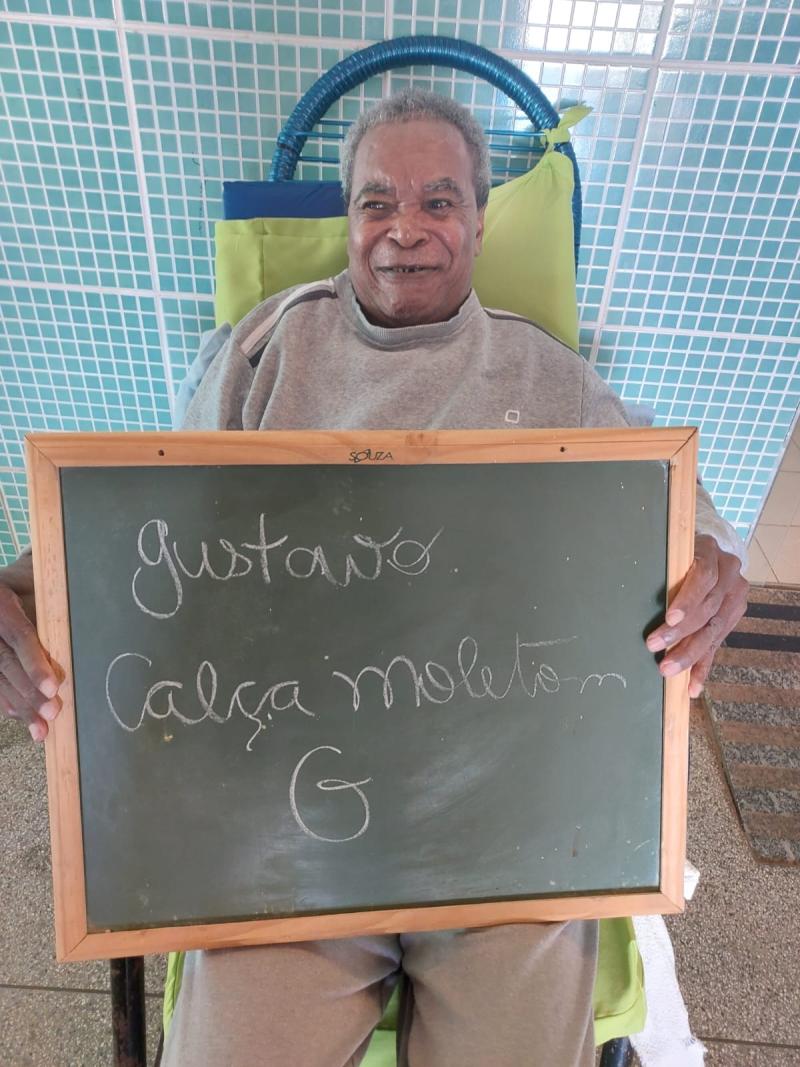 SOUZA
Gustavo
Calça moletom
G